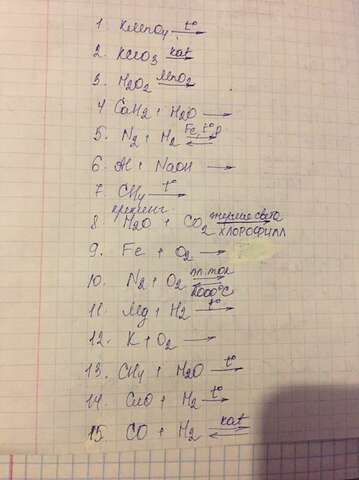 1. KMnO₄ t° →
2. KClO₃ kat →
3. H₂O₂ MnO₂ →
4 CaH₂ + H₂O →
5. N₂ + H₂ Fe, t°, p ⇄
6. Al + NaOH →
7. CH₄ t° →
крекинг
8. H₂O + CO₂ энергия света → ХЛОРОФИЛЛ
9. Fe + O₂ →
10. N₂ + O₂ эл. ток ⇄ 2000°C
11. Mg + H₂ t° →
12. K + O₂ →
13. CH₄ + H₂O t° →
14. CuO + H₂ t° →
15. CO + H₂ kat ⇄